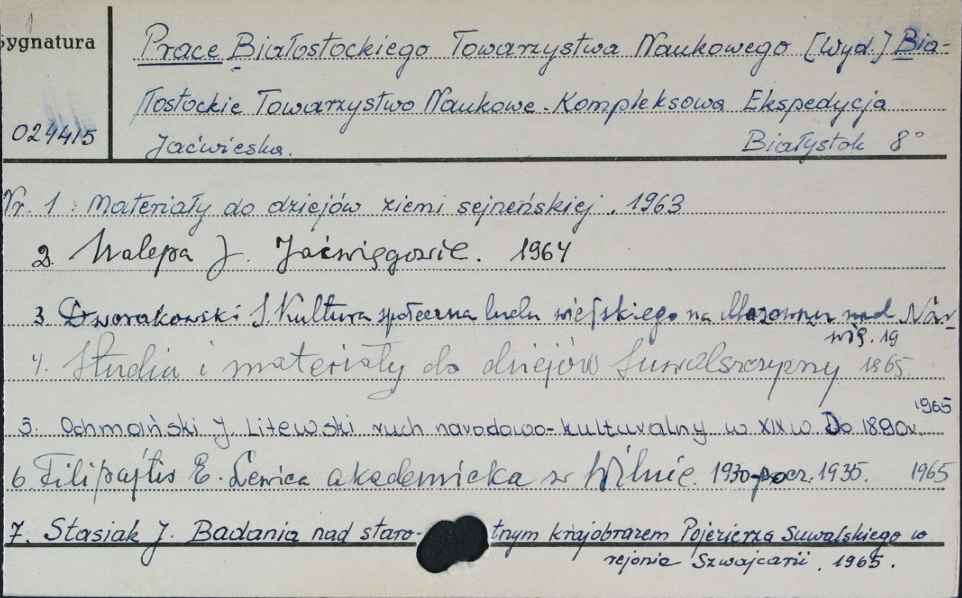 Sygnatura
Prace Białostockiego Towarzystwa Naukowego [Wyd.] Bia-
łostockie Towarzystwo Naukowe - Kompleksowa Ekspedycja
024415
Jaćwieska. Białystok 8°
Nr. 1. Materiały do dziejów ziemi sejneńskiej. 1963
2. Nalepa J. Jaćwięgowie. 1964
3. Dworakowski S. Kultura społeczna ludu wiejskiego na Mazowszu nad Nar-
wią. 19
4. Studia i materiały do dziejów Suwalszczyzny 1965.
5. Ochmański J. Litewski ruch narodowo-kulturalny w XIX w. Do 1890r. 1965
6. Filipajtis E. Lewica akademicka w Wilnie. 1930-pocz. 1935. 1965
7. Stasiak J. Badania nad staro- tnym krajobrazem Pojezierza Suwalskiego w
rejonie Szwajcarii. 1965.